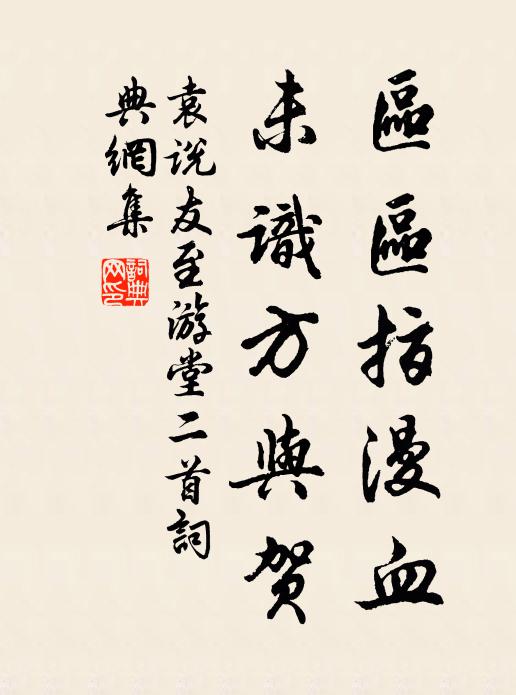 區區指漫血
未識方與賀
袁說友至游堂二首詞
典網集
詞典網印